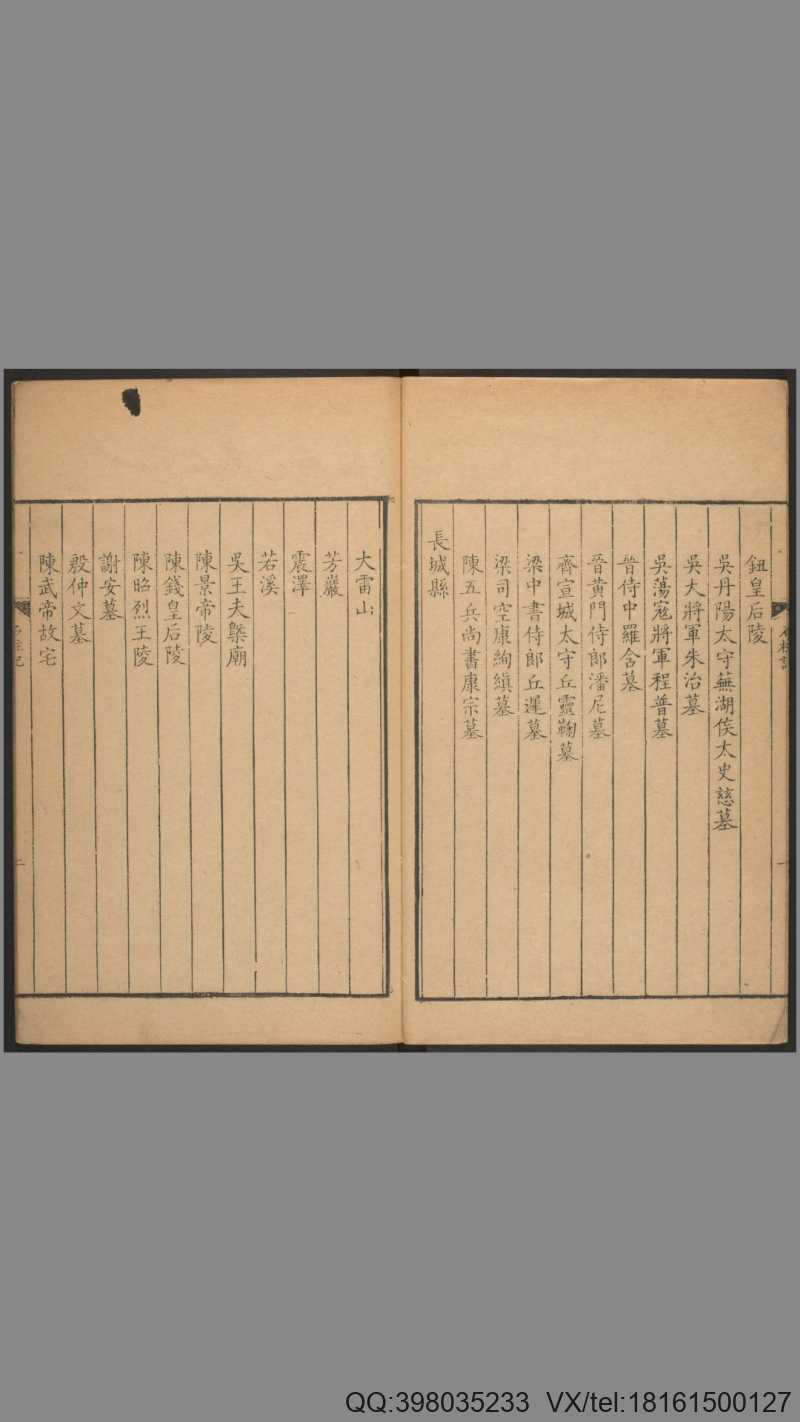 鈕皇后陵
吳丹陽太守蕪湖侯太史慈墓
吳大將軍朱治墓
吳蕩寇將軍程普墓
晉侍中羅含墓
晉黄門侍郎潘尼墓
齊宣城太守丘靈鞠墓
梁中書侍郎丘遲墓
梁司空康絢縝墓
陳五兵尚書康宗墓
長城縣
大雷山
芳巖
震澤
若溪
吳王夫槩廟
陳景帝陵
陳錢皇后陵
陳昭烈王陵
謝安墓
殷仲文墓
陳武帝故宅
二
QQ:398035233 VX/tel:18161500127